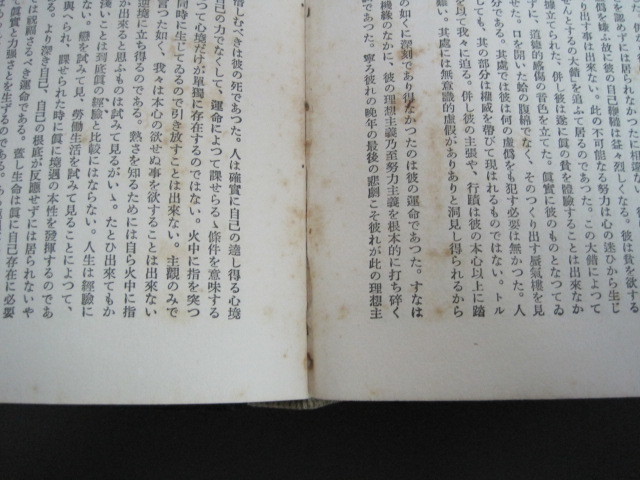 を認めずには居られなかつた。彼は貧を欲する
を嫌ふ故に彼の自己聯想は益々烈しくなる。
り出す事は出來ない。此の不可能な努力は心の迷ひから生じ
せんとするの大錯を追ふて居るのであつた。この大錯によつて
ゐられた。併し彼は遂に眞の貧を體驗することは出來なか
に、道德的感傷の音色を立てた。眞實に彼のものとなつてゐ
せた。口を開いた蛤の腹綿でなく、そのつくり出す蜃氣樓を見
分である。其處では彼は何の虛僞をも犯す必要は無かつた。人
しても、其の部分は權威を帶びて現はれるものではない。トル
を以て我々に迫る。併し彼の主張や、行蹟は彼の本心以上に踏
難い。其處には無意識的虛假がありありと洞見し得られるから
の如くに深刻であり得なかつたのは彼の運命であつた。すなは
機緣のなかに、彼の理想主義乃至努力主義を根本的に打ち碎く
であつた。寧ろ彼れの晩年の最後の悲劇こそ彼れが此の理想主
惜しむべきは彼の死であつた。人は確實に自己の達し得る心境
自己の力でなくして、運命によつて課せらるゝ條件を意味する
つて心境だけが單獨に存在するのではない。火中に指を突つ
同時に生じてゐるので引き放すことは出來ない。主觀のみで
言つた如く、我々は本心の欲せぬ事を欲することは出來ない
逆境に立ち得るのである。熱さを知るためには自ら火中に指
が出來ると思ふものは試みて見るがいゝ。たとひ出來てもか
淺いことは到底眞の經驗と比較にはならない。人生は經驗に
ない。戀を試みて見、勞働生活を試みて見ることによつて、
與へられ、課せられた時に眞に境遇の本性を發揮するのであ
より深き自己、自己の根底が反應せずには居られないや
は戯謔さるべき運命である。蓋し生命は眞に自己存在に必要
眞實と力強さとを生ずるのである。